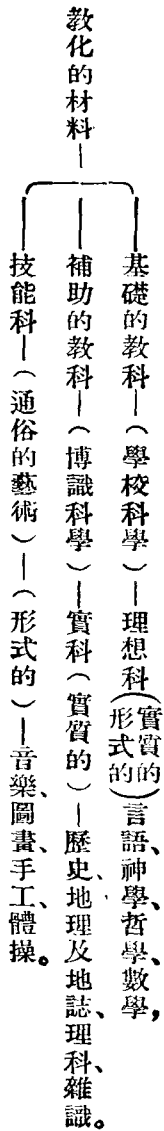 教化的材料—
基礎的教科—(學校科學)—理想科(實質的形式的)言語、神學、哲學、數學，
補助的教科—(博識科學)—實科(實質的)—歷史、地理及地誌、理科、雜識。
技能科—(通俗的藝術)—(形式的)—音樂、圖畫、手工、體操。